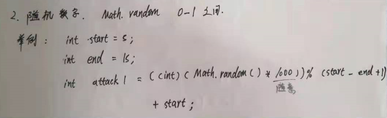 2. 随机数字. Math. random 0-1 之间.
举例: int start = 5;
int end = 15;
int attack1 = ((int)(Math.random() * 1000))% (start - end +1)
随意
+ start;